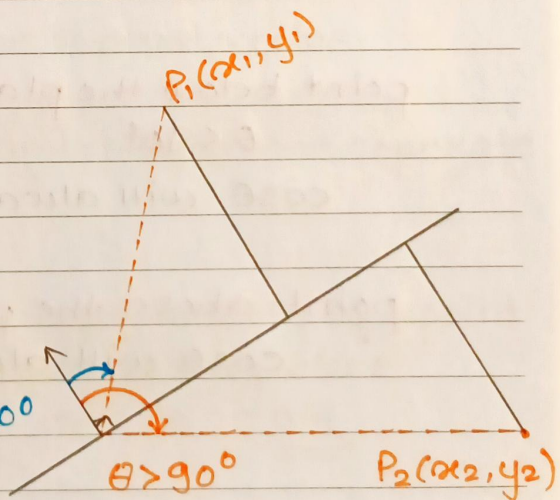 P₁(x₁, y₁)
0°
θ>90°
P₂(x₂, y₂)